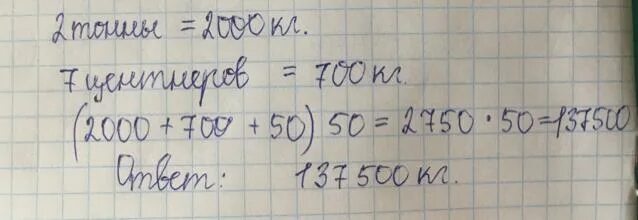 2 тонны = 2000 кг.
7 центнеров = 700 кг
(2000 + 700 + 50) 50 = 2750 · 50 = 137500
Ответ: 137500 кг.